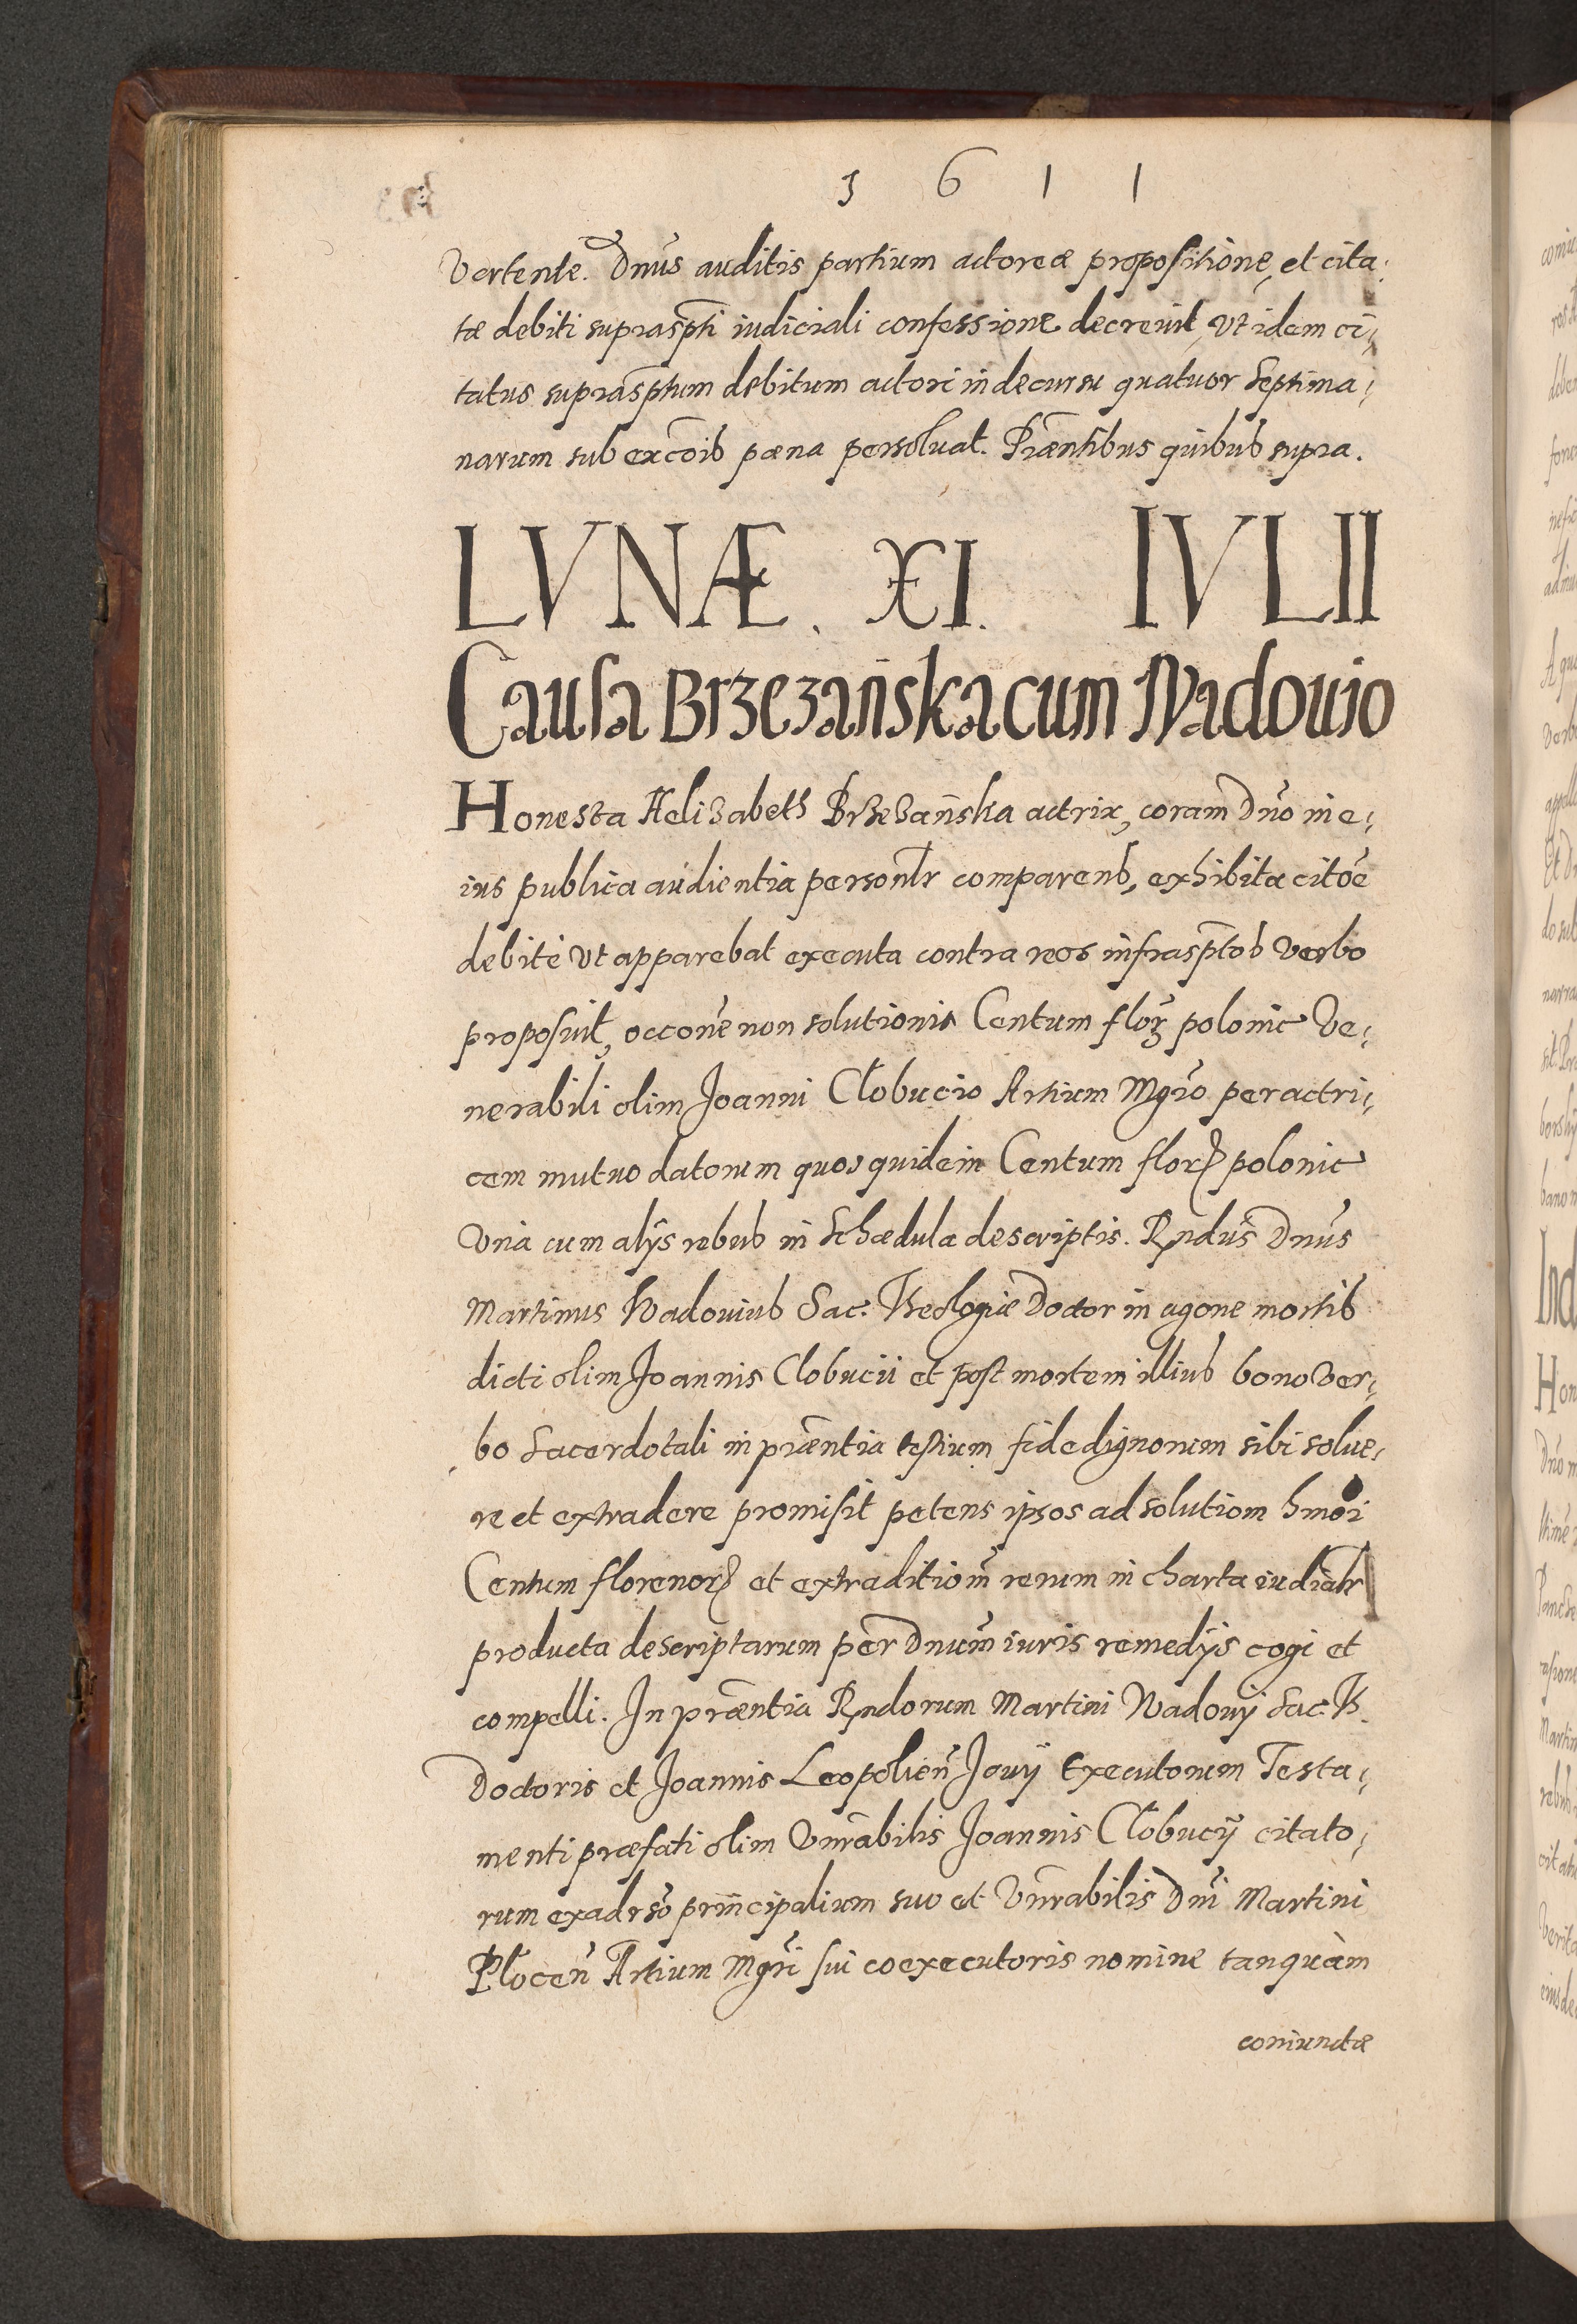 1 6 1 1
Vertente. Dnũs auditis partium actoreæ propositione, et cita:
tæ debiti suprasp̃ti iudiciali confessione decreuit, Vt idem ci;
tatus suprasp̃tum debitum actori in decursu quatuor Septima;
narum sub excõis pœna persoluat. Præ̃ntibus quibus supra.
LVNÆ. XI. IVLII
Causa Brzezańska cum Wadouio
Honesta Helizabeth Brzezańska actrix, coram Dño in e;
ius publica audientia personlr̃ comparens, exhibita citõe
debite Vt apparebat executa contra reos infrasp̃tos Verbo
proposuit, occõne non solutionis Centum flor̃ polonic Ve;
nerabili olim Joanni Clobucio Artium Mgr̃o per actri;
cem mutuo datorum quos quidem Centum flor̃ polonic
Vna cum alijs rebus in Schædula descriptis. Rndus̃ Dnũs
Martinus Wadouius Sac. Theologiæ Doctor in agone mortis
dicti olim Joannis Clobucii et post mortem illius bono Ver;
bo Sacerdotali in præ̃ntia testium fide dignorum sibi solue;
re et extradere promisit petens ipsos ad solutiom hmõi
Centum florenor̃ et extraditiom̃ rerum in charta iudialr̃
producta descriptarum per Dnum̃ iuris remedijs cogi et
compelli. In præ̃ntia Rndorum Martini Wadouij Sac. Th.
Doctoris et Joannis Leopolien̄ Jouij Executorum Testa;
menti præfati olim Vnr̃abilis Joannis Clobucij citato;
rum ex aduerso principalium suo et Vnr̃abilis Dnĩ Martini
Plocen̄ Artium Mgr̃i sui coexecutoris nomine tanquàm
coniunctæ